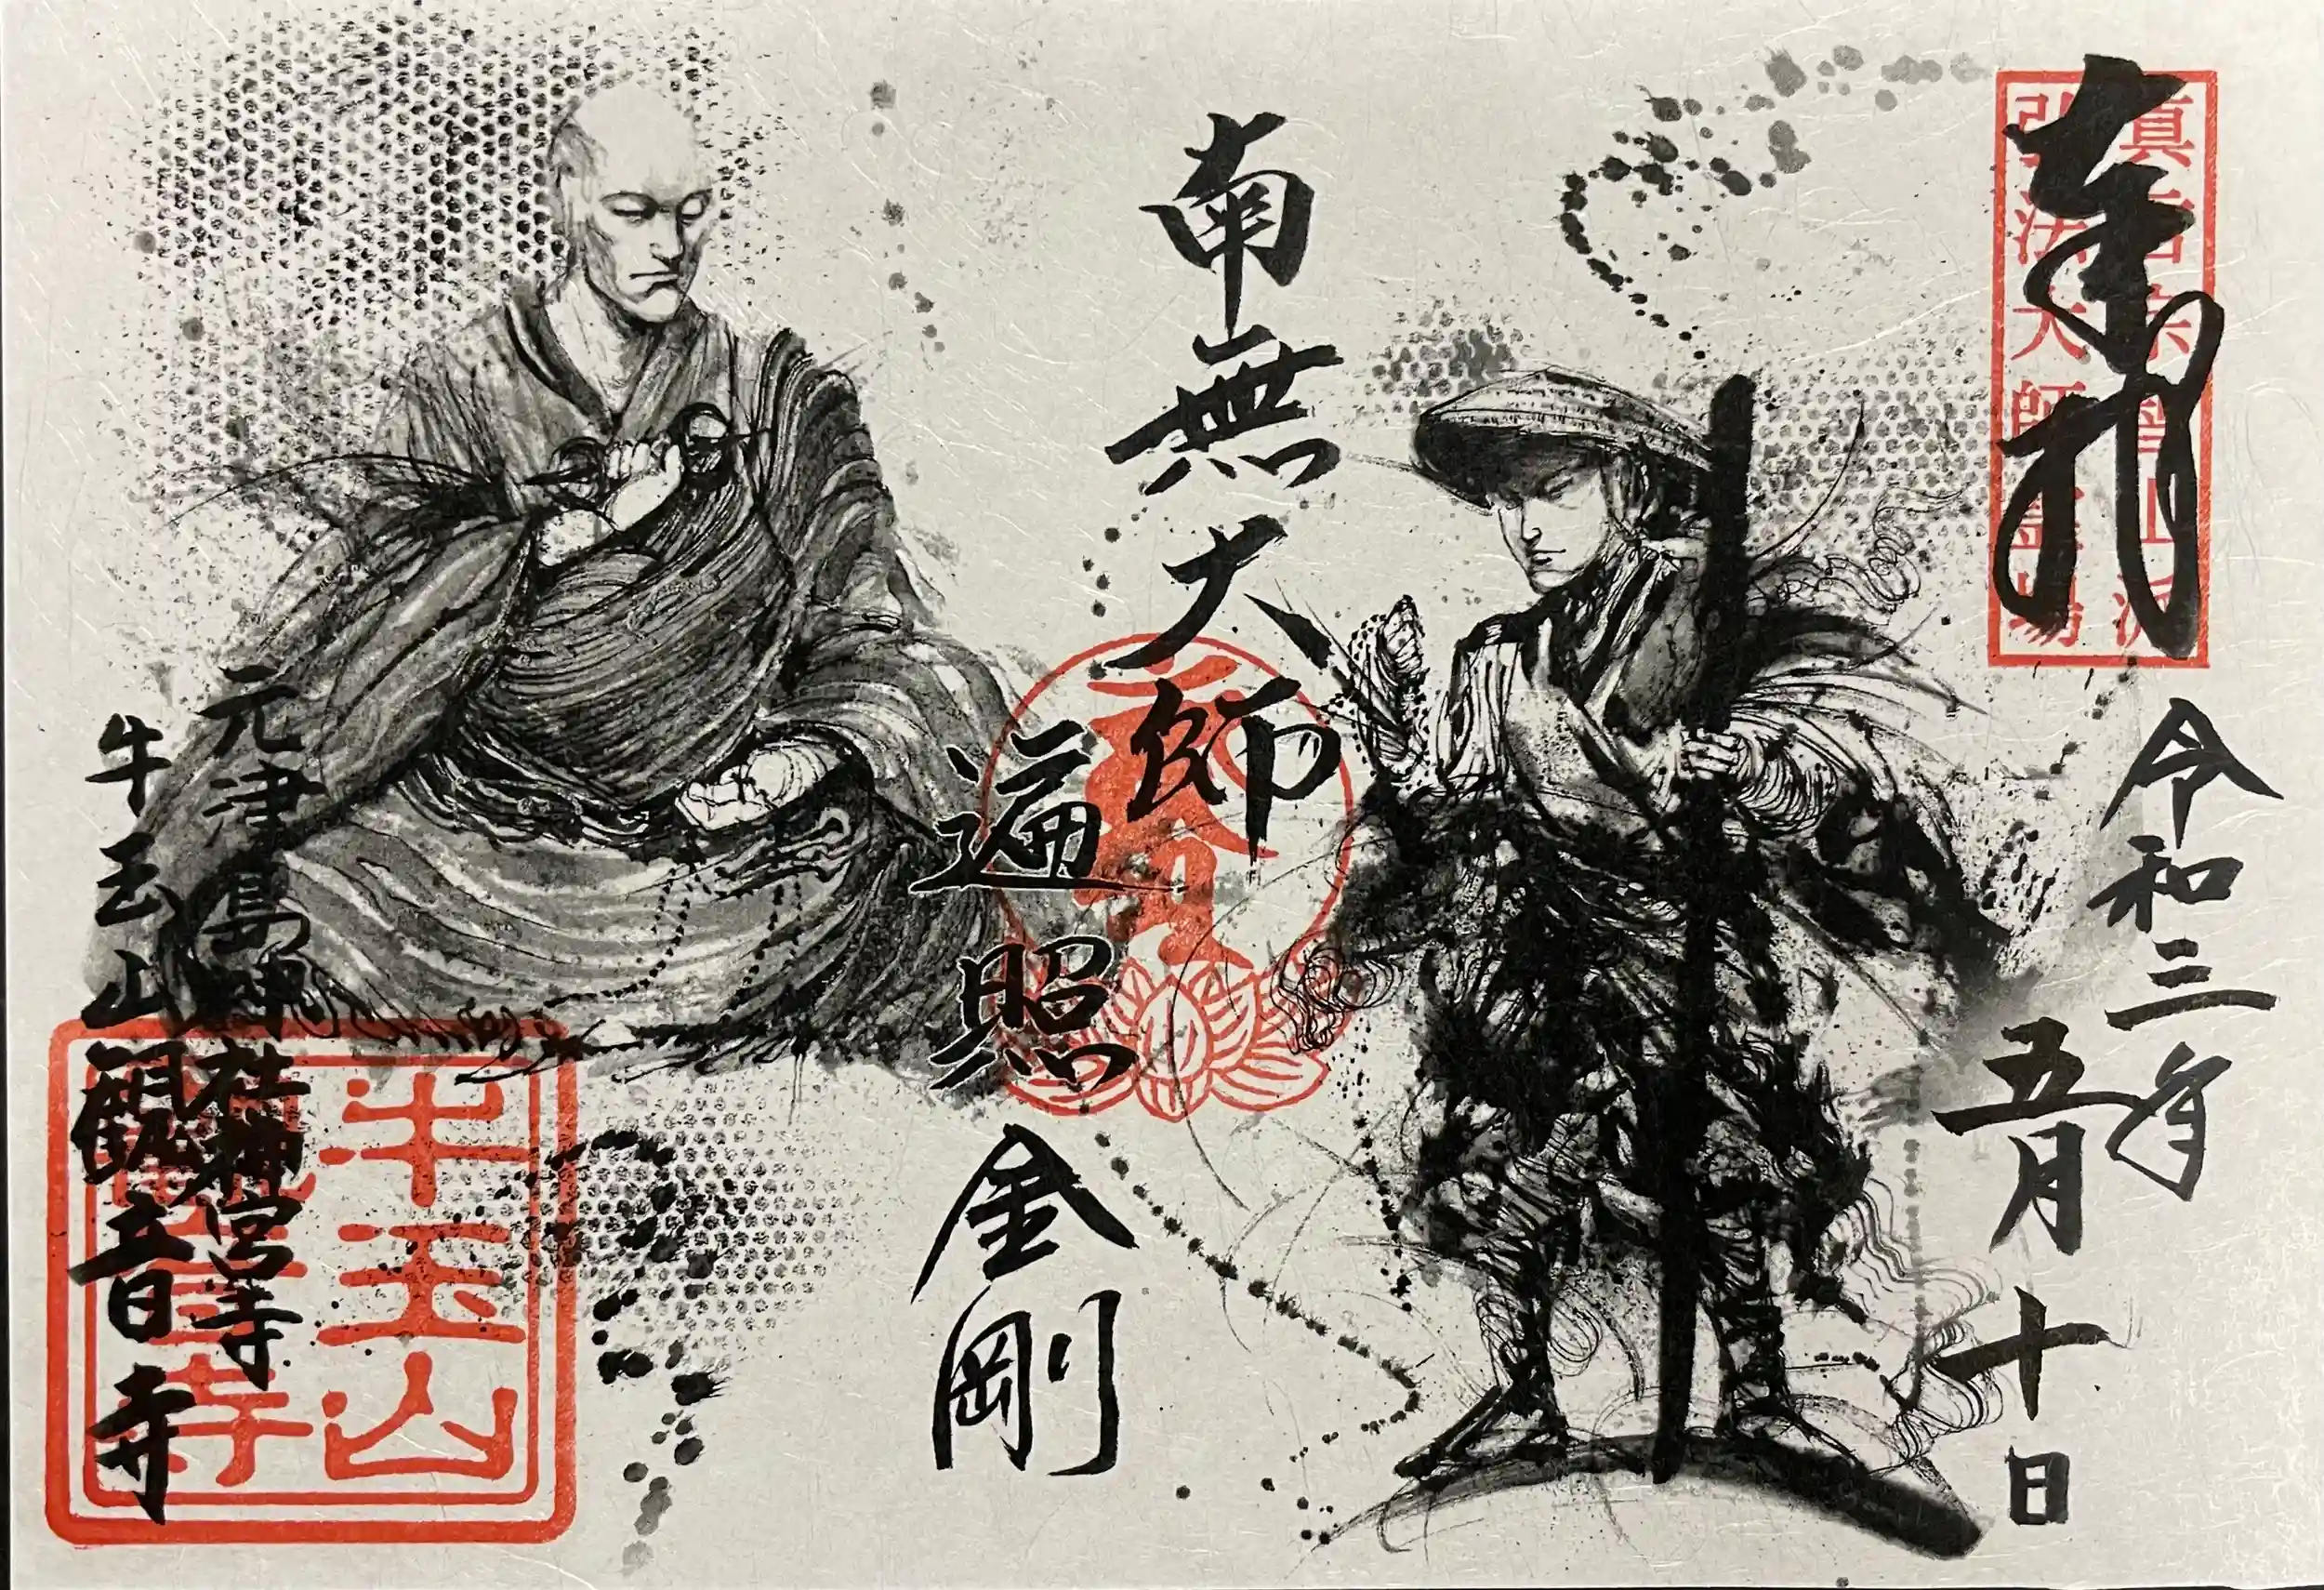 奉拝
真言宗智山派
弘法大師霊場
令和三年
五月十日
南無大師
遍照金剛
元津島神社神宮寺
牛玉山観音寺
牛玉山
観音寺